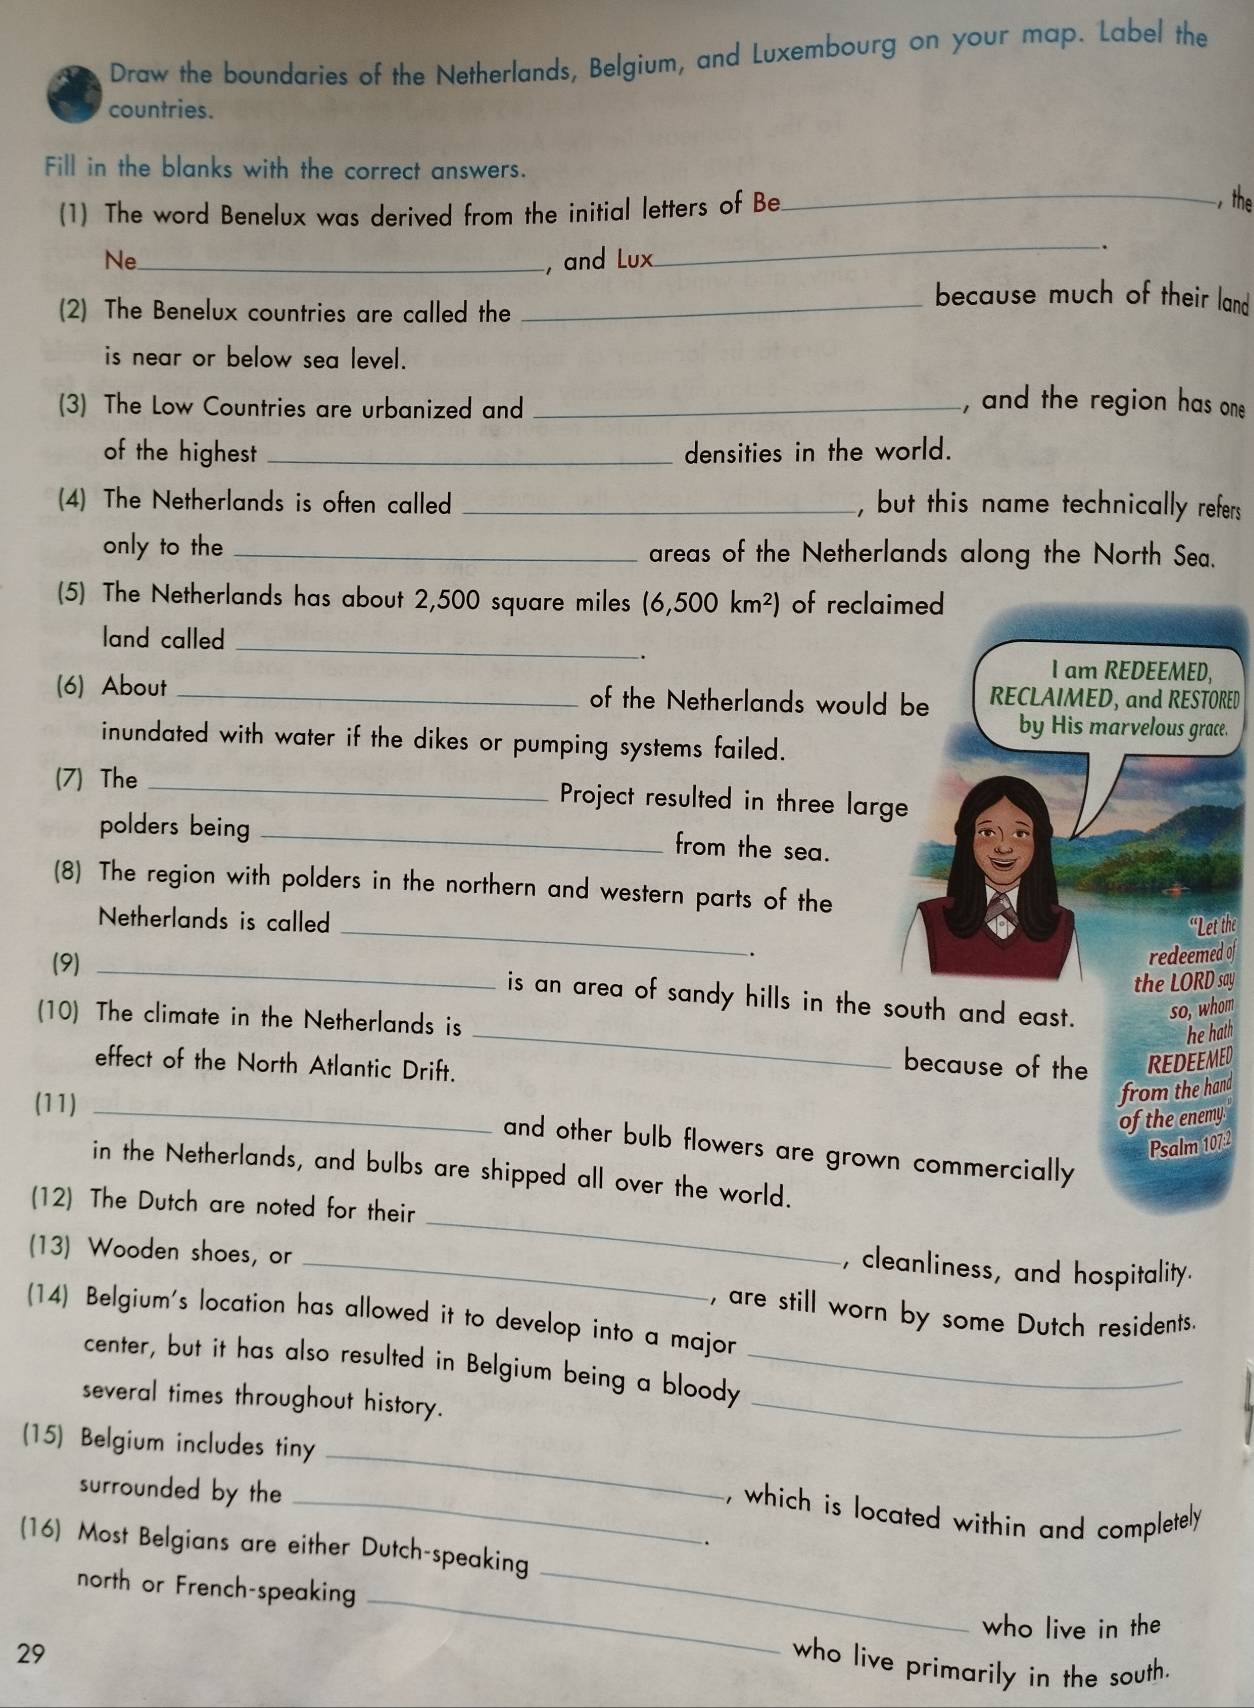 Draw the boundaries of the Netherlands, Belgium, and Luxembourg on your map. Label the
countries.
Fill in the blanks with the correct answers.
(1) The word Benelux was derived from the initial letters of Be____, the
Ne____, and Lux____.
(2) The Benelux countries are called the ____ because much of their land
is near or below sea level.
(3) The Low Countries are urbanized and ____, and the region has one
of the highest ____ densities in the world.
(4) The Netherlands is often called ____, but this name technically refers
only to the ____ areas of the Netherlands along the North Sea.
(5) The Netherlands has about 2,500 square miles (6,500 km²) of reclaimed
land called ____.
(6) About ____ of the Netherlands would be
inundated with water if the dikes or pumping systems failed.
(7) The ____ Project resulted in three large
polders being ____ from the sea.
(8) The region with polders in the northern and western parts of the
Netherlands is called ____.
(9) ____ is an area of sandy hills in the south and east.
(10) The climate in the Netherlands is ____ because of the
effect of the North Atlantic Drift.
(11) ____ and other bulb flowers are grown commercially
in the Netherlands, and bulbs are shipped all over the world.
(12) The Dutch are noted for their ____, cleanliness, and hospitality.
(13) Wooden shoes, or ____, are still worn by some Dutch residents.
(14) Belgium's location has allowed it to develop into a major ____
center, but it has also resulted in Belgium being a bloody ____
several times throughout history.
(15) Belgium includes tiny ____, which is located within and completely
surrounded by the ____.
(16) Most Belgians are either Dutch-speaking ____ who live in the
north or French-speaking ____ who live primarily in the south.
29
I am REDEEMED,
RECLAIMED, and RESTORED
by His marvelous grace.
“Let the
redeemed of
the LORD say
so, whom
he hath
REDEEMED
from the hand
of the enemy.”
Psalm 107:2